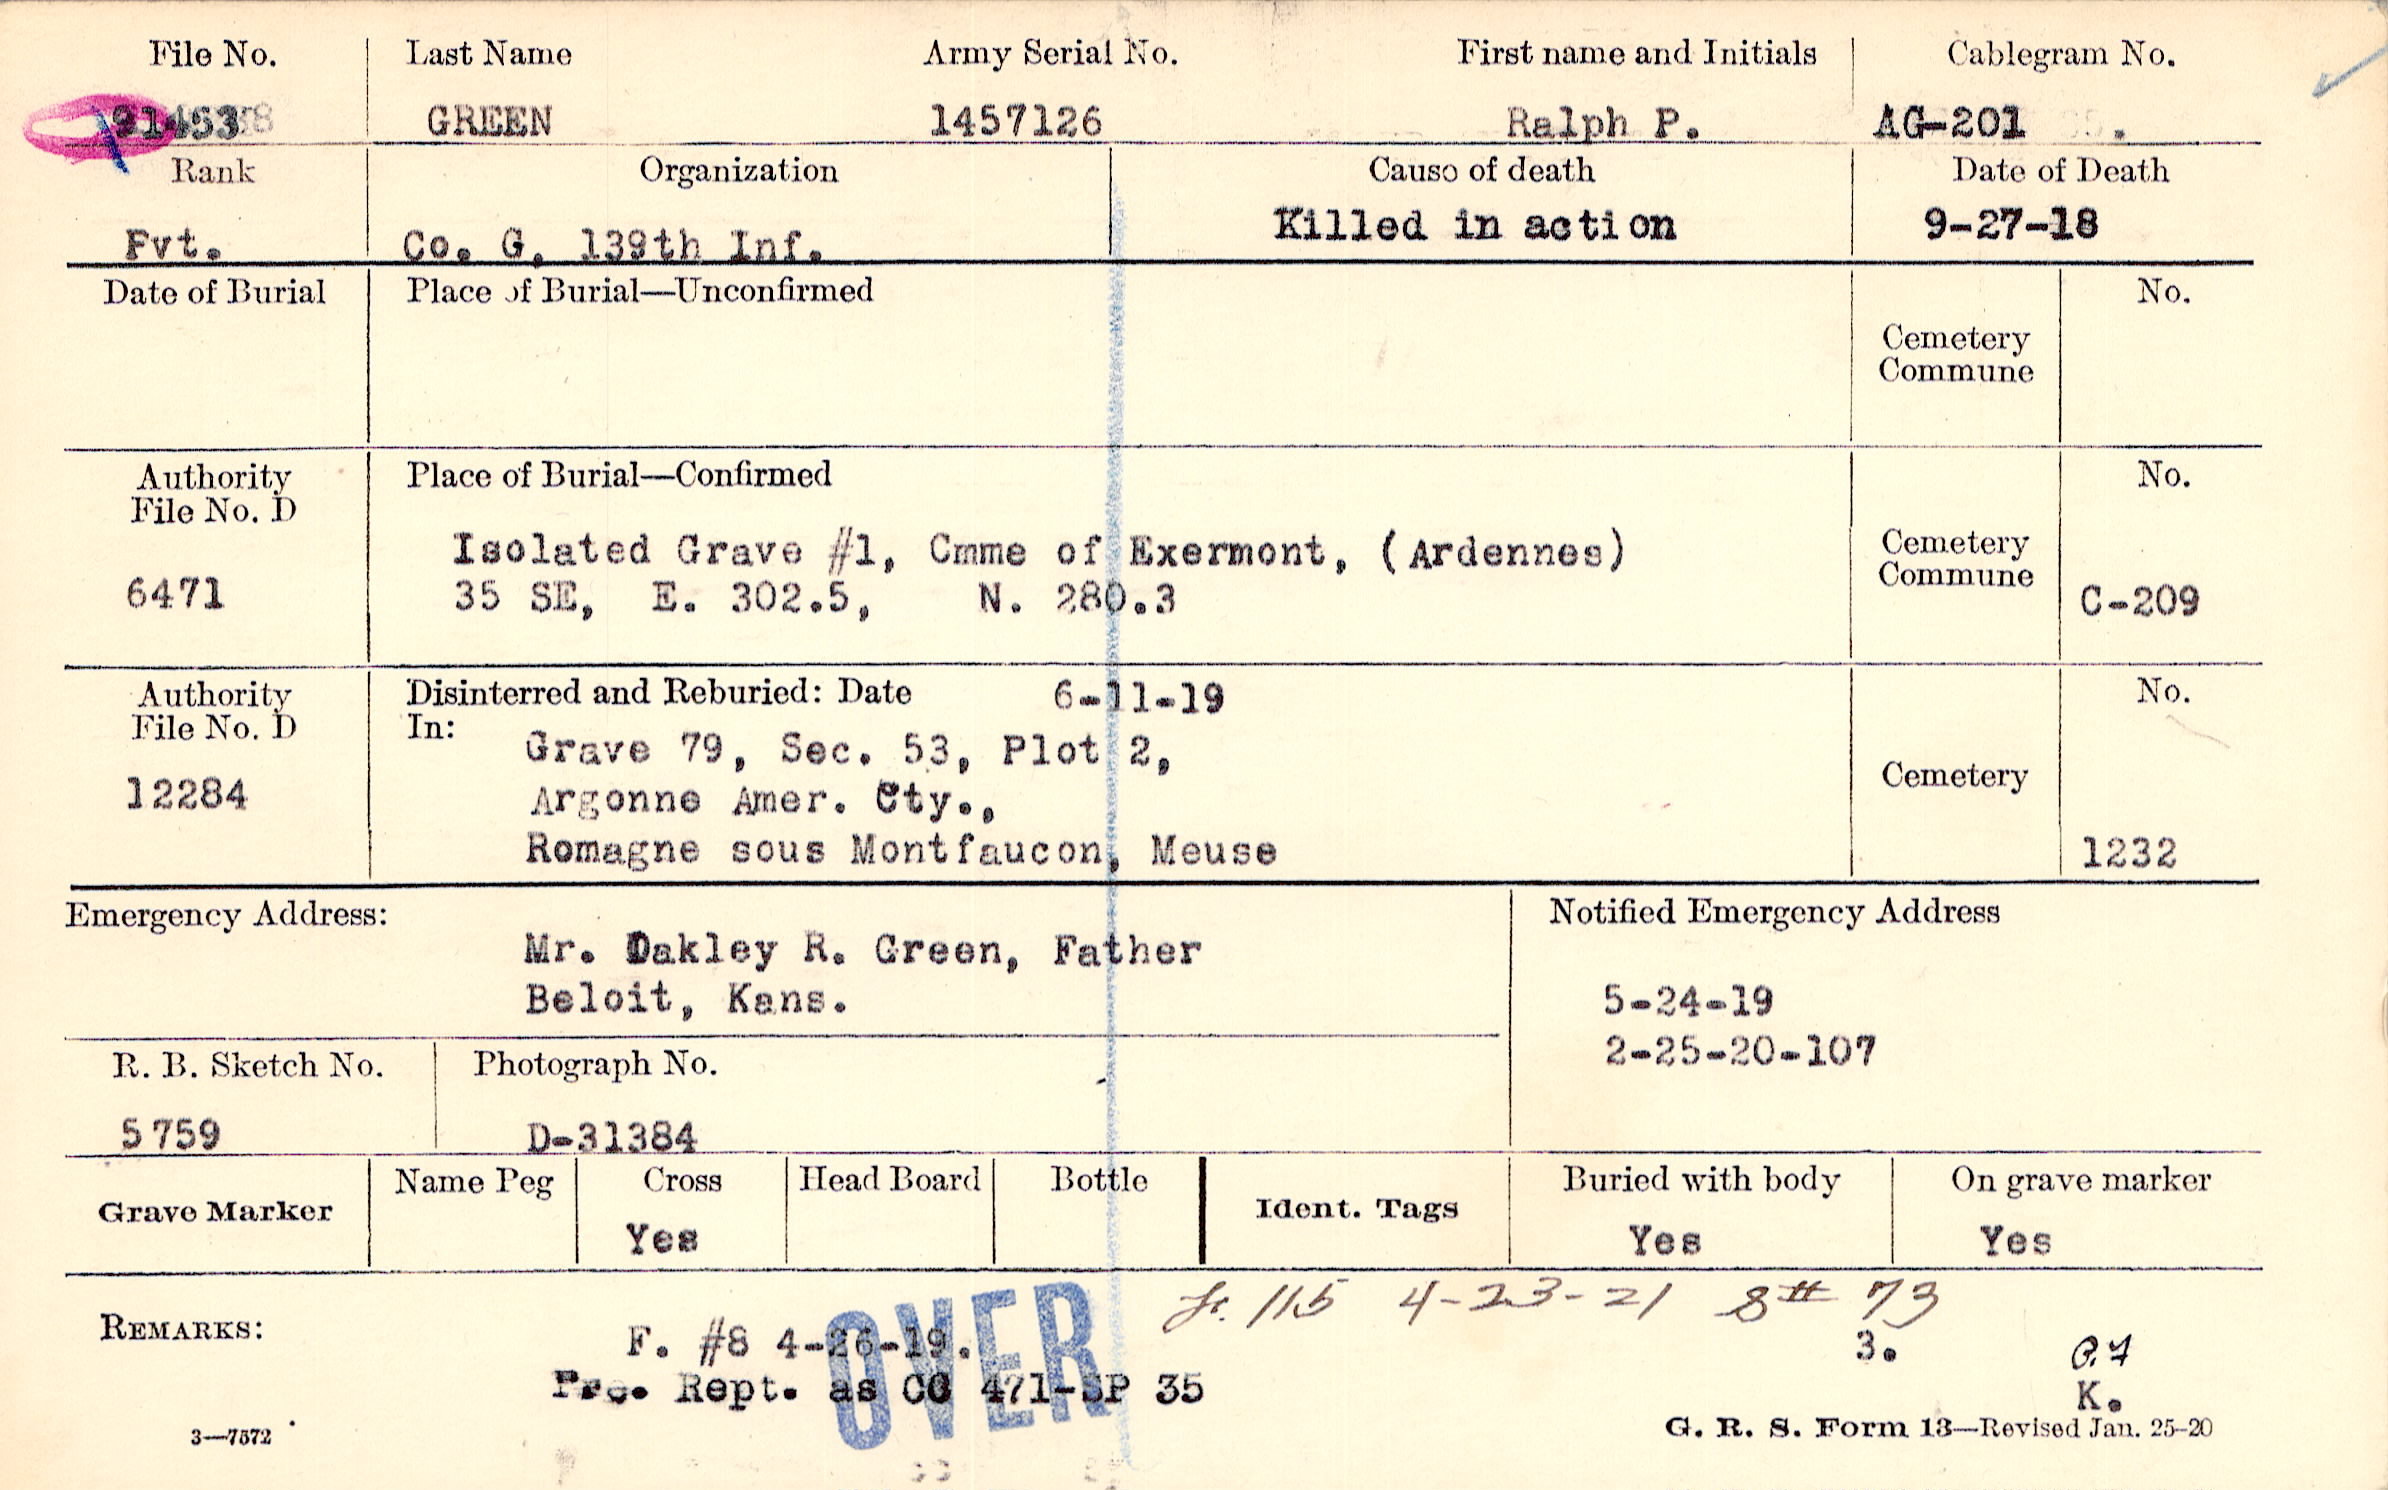 File No. Last Name Army Serial No. First name and Initials Cablegram No.
91453 GREEN 1457126 Ralph P. AG-201
Rank Organization Cause of death Date of Death
Pvt. Co. G, 139th Inf. Killed in action 9-27-18
Date of Burial Place of Burial—Unconfirmed No.
Cemetery
Commune
Authority Place of Burial—Confirmed No.
File No. D
Isolated Grave #1, Cmme of Exermont, (Ardennes) Cemetery
Commune
6471 35 SE, E. 302.5, N. 280.3 C-209
Authority Disinterred and Reburied: Date 6-11-19 No.
File No. D In:
Grave 79, Sec. 53, Plot 2,
12284 Argonne Amer. Cty., Cemetery
Romagne sous Montfaucon, Meuse 1232
Emergency Address: Notified Emergency Address
Mr. Oakley R. Green, Father
Beloit, Kans. 5-24-19
2-25-20-107
R. B. Sketch No. Photograph No.
5759 D-31384
Grave Marker Name Peg Cross Head Board Bottle Ident. Tags Buried with body On grave marker
Yes Yes Yes
115 4-23-21 8# 73
REMARKS: F. #8 4-26-19. 3.
OVER
Pre. Rept. as CG 471-SP 35 K.
3—7572 G. R. S. Form 13—Revised Jan. 25-20